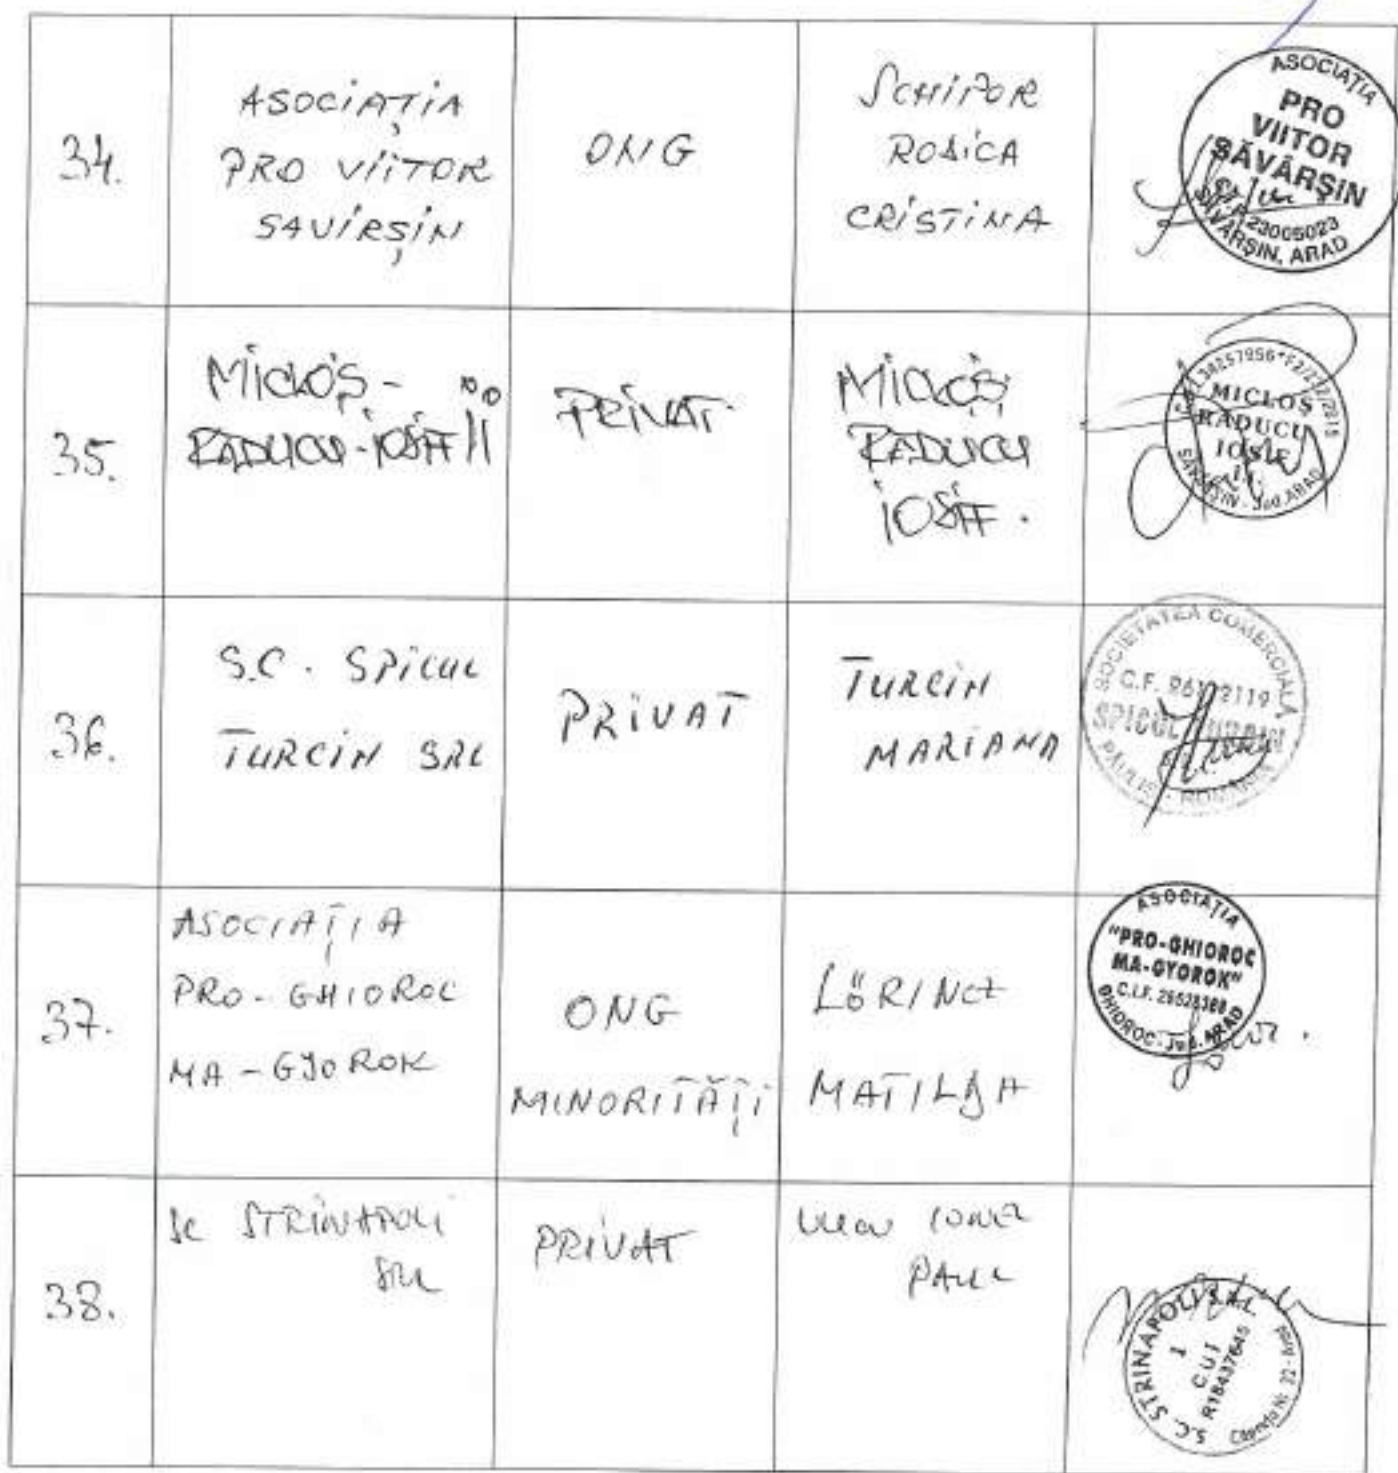 34.
ASOCIAȚIA
PRO VIITOR
SAVIRȘIN
ONG
SCHIPOR
RODICA
CRISTINA
ASOCIAȚIA
PRO
VIITOR
SĂVÂRȘIN
23005023
SĂVÂRȘIN, ARAD
35.
MICLOȘ-
RADUCU-IOSIF II
PRIVAT
MICLOȘ
RADUCU
IOSIF.
MICLOȘ
RADUCU
IOSIF
I.I.
SĂVÂRȘIN - Jud. ARAD
36.
S.C. SPICUL
TURCIN SRL
PRIVAT
TURCIN
MARIANA
SOCIETATEA COMERCIALĂ
C.F.
SPICUL TURCIN
PĂULIȘ - ROMÂNIA
37.
ASOCIAȚIA
PRO-GHIOROC
MA-GYOROK
ONG
MINORITĂȚI
LÖRINCZ
MATILDA
ASOCIAȚIA
"PRO-GHIOROC
MA-GYOROK"
C.I.F.
GHIOROC - Jud. ARAD
38.
SC STRINAPOLI
SRL
PRIVAT
IONEL
PAUL
S.C. STRINAPOLI S.R.L.
1
C.U.I
R18437645